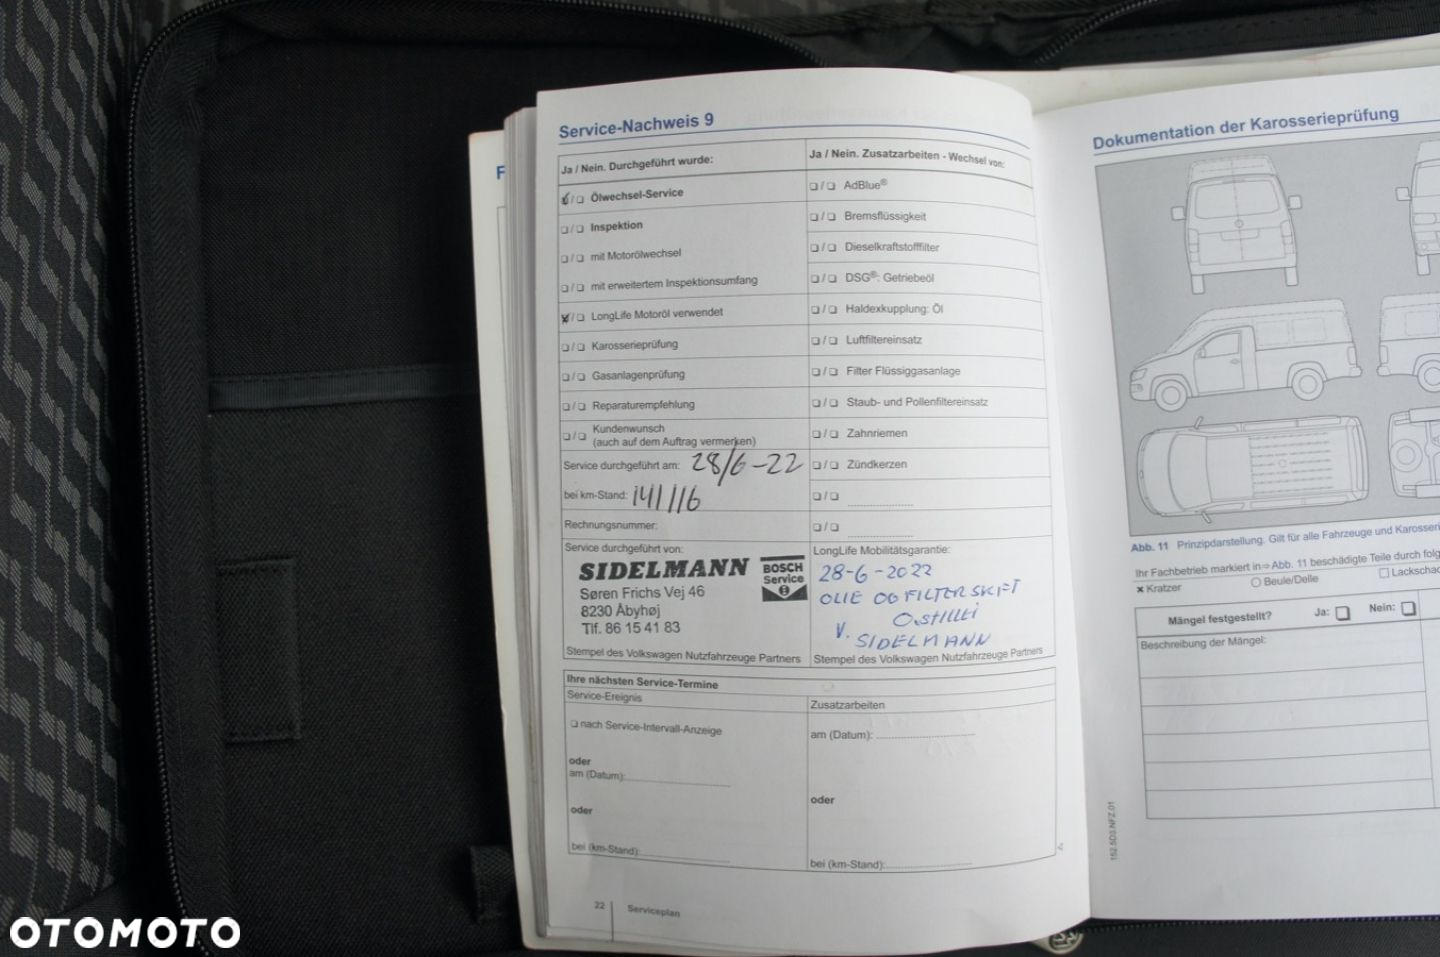 Service-Nachweis 9
Ja / Nein. Durchgeführt wurde:
Ölwechsel-Service
Inspektion
mit Motorölwechsel
mit erweitertem Inspektionsumfang
LongLife Motoröl verwendet
Karosserieprüfung
Gasanlagenprüfung
Reparaturempfehlung
Kundenwunsch
(auch auf dem Auftrag vermerken)
Service durchgeführt am: 28/6-22
bei km-Stand: 141116
Rechnungsnummer:
Service durchgeführt von:
SIDELMANN
Søren Frichs Vej 46
8230 Åbyhøj
Tlf. 86 15 41 83
BOSCH
Service
Stempel des Volkswagen Nutzfahrzeuge Partners
Ja / Nein. Zusatzarbeiten - Wechsel von:
AdBlue®
Bremsflüssigkeit
Dieselkraftstofffilter
DSG®: Getriebeöl
Haldexkupplung: Öl
Luftfiltereinsatz
Filter Flüssiggasanlage
Staub- und Pollenfiltereinsatz
Zahnriemen
Zündkerzen
LongLife Mobilitätsgarantie:
28-6-2022
OLIE OG FILTERSKIFT
V.
SIDELMANN
Stempel des Volkswagen Nutzfahrzeuge Partners
Ihre nächsten Service-Termine
Service-Ereignis
nach Service-Intervall-Anzeige
oder
am (Datum):
oder
bei (km-Stand):
Zusatzarbeiten
am (Datum):
oder
bei (km-Stand):
22 Serviceplan
F
Dokumentation der Karosserieprüfung
Abb. 11 Prinzipdarstellung. Gilt für alle Fahrzeuge und Karosseri
Ihr Fachbetrieb markiert in ⇒ Abb. 11 beschädigte Teile durch folg
Kratzer Beule/Delle Lackschad
Mängel festgestellt? Ja: Nein:
Beschreibung der Mängel:
152.5D3.NFZ.01
OTOMOTO